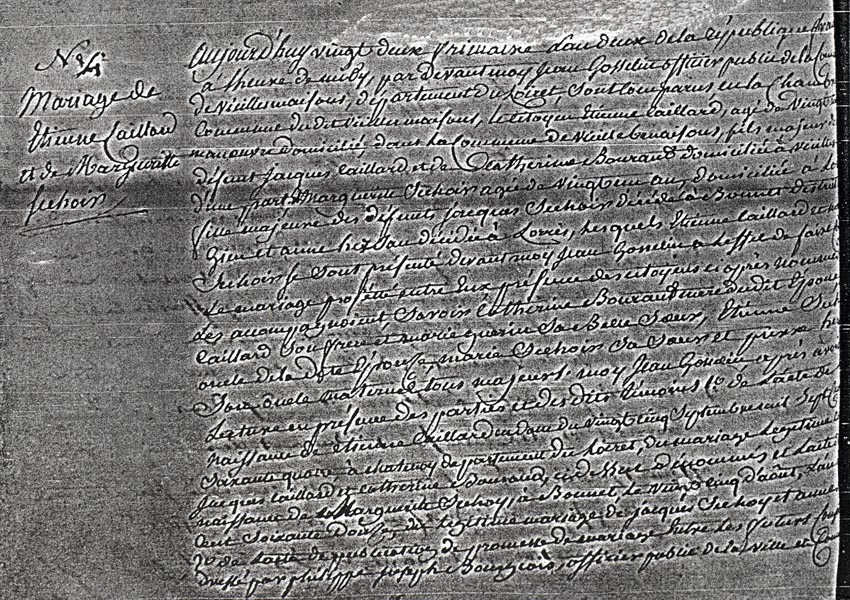 N.4
Mariage de
Etienne Caillard
et de Margueritte
Sechoir
Aujourd'huy vingt deux frimaire L'an deux de la République
à L'heure de midy, par Devant moy Jean Gosselin officier public de la
de Vieilles maisons, département du Loiret, sont comparus en la Chambre
Commune du dit Vieilles maisons, le Citoyen Etienne Caillard, agé de Vingt
manouvre Domicilié dans la Commune de Vieilles maisons, fils majeur de
défunt Jacques Caillard et de Catherine Bouraud domiciliée à Vieilles
d'une part, Marguerite Sechoir agée de vingt un ans, domiciliée à
fille majeure des défunts Jacques Sechoir décédé à Bonnet
Gien et anne décédée à Lorris, Lesquels Etienne Caillard et
Sechoir se sont présenté Devant moy Jean Gosselin à L'effet de faire
Le mariage projetté entre Eux présence des citoyens ci après nommés
Les acompagnoient, Savoir Catherine Bouraud mere du dit Epoux
Caillard Son frere et marie Sa Belle Sœur, Etienne
oncle de la dite Epouse, marie Sechoir Sa Sœur et pierre
Son oncle maternel tous majeurs. moy Jean Gosselin après avoir
Lecture en présence des parties et des dits témoins 1° de L'acte de
naissance de Etienne Caillard en date du vingt cinq Septembre mil Sept
Soixante quatre à Chatenoy département du Loiret, du mariage Legitime
Jacques Caillard et Catherine Bouraud, ci dessus dénommés et L'acte
naissance de Marguerite Sechoy, à Bonnet Le vingt cinq d'août,
Cent Soixante Douze, du Legitime mariage de Jacques Sechoy et anne
de L'acte de publication de promesse de mariage Entre Les futurs
dressé par philippe Joseph Bourgeois, officier public de la Ville et